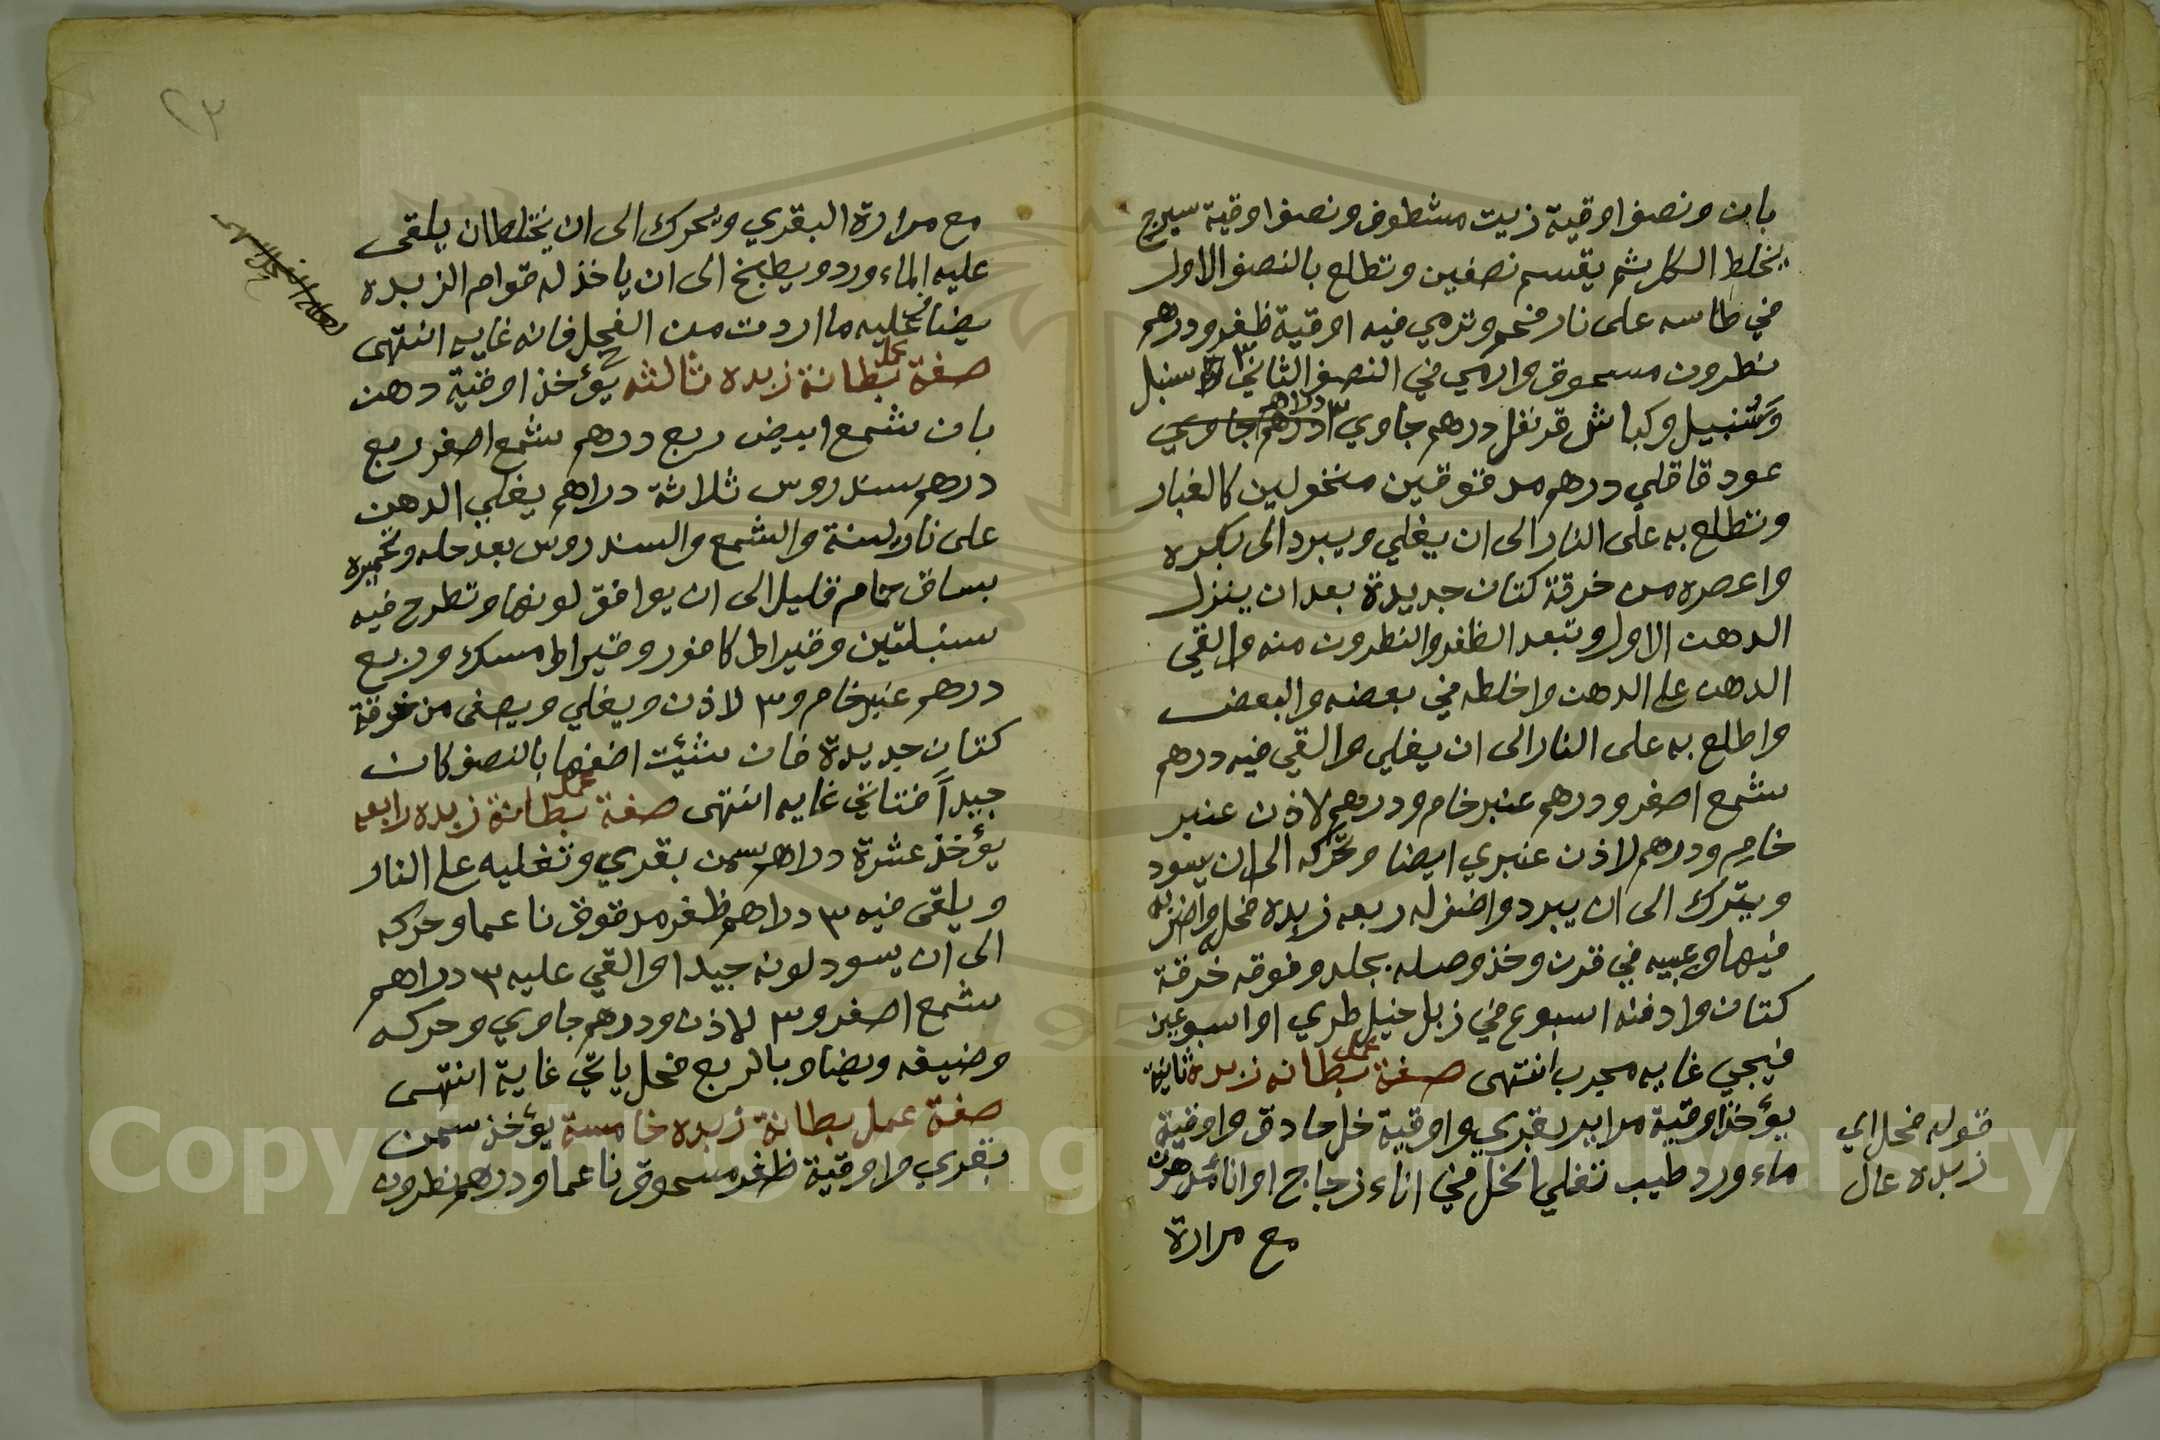 بان ونصف اوقية زيت مشطوف ونصف اوقية سيرج
يخلط الكل ثم يقسم نصفين وتطلع بالنصف الاول
في طاسه على نار فحم وترمي فيه اوقية ظفر ودرهم
نطرون مسحوق وارمي في النصف الثاني ٣ سنبل
وشنبيل وكباش قرنفل درهم جاوي ٣ دراهم
عود قاقلي درهم مدقوقين منخولين كالغبار
وتطلع به على النار الى ان يغلي ويبرد الى بكره
واعصره من خرقة كتان جديدة بعد ان ينزل
الدهن الاول وتبعد الظفر والنطرون منه والقي
الدهن على الدهن واخلطه في بعضه والبعض
واطلع به على النار الى ان يغلي والقي فيه درهم
شمع اصفر ودرهم عنبر خام ودرهم لاذن عنبر
خام ودرهم لاذن عنبري ايضا وتحركه الى ان يسود
ويترك الى ان يبرد واضف له ربعه زبده فحل واضربه
فيها وعبيه في قرن وخذ وصله بجلد وفوقه خرقة
كتان وادفنه اسبوع في زبل خيل طري او اسبوعين
فيجي غايه مجرب انتهى صفة عمل بطانه زبده ثانية
يؤخذ اوقية مراير بقري واوقية خل حادق واوقية
ماء ورد طيب تغلي الخل في اناء زجاج او اناء مدهون
مع مرارة
قوله فحل اي
زبده عال
٢٣
مع مرارة البقري ويحرك الى ان يختلطان يلقى
عليه الماء ورد ويطبخ الى ان ياخذ له قوام الزبده
يضاف عليه ما اردت من الفحل فانه غايه انتهى
صفة عمل بطانة زبده ثالثه يؤخذ اوقية دهن
بان شمع ابيض ربع درهم شمع اصفر ربع
درهم سندروس ثلاثة دراهم يغلي الدهن
على نار لينة والشمع والسندروس بعد حله وتخميره
بساق حمام قليل الى ان يوافق لونها وتطرح فيه
سنبلتين وقيراط كافور وقيراط مسك وربع
درهم عنبر خام و٣ لاذن ويغلي ويصفى من خرقة
كتان جديدة فان شئت اضفها بالنصف كان
جيداً فتاتي غايه انتهى صفة عمل بطانة زبده رابعه
يؤخذ عشرة دراهم سمن بقري وتغليه على النار
ويلقى فيه ٣ دراهم ظفر مدقوق ناعما وحركه
الى ان يسود لونه جيدا والقي عليه ٣ دراهم
شمع اصفر و٣ لاذن ودرهم جاوي وحركه
وضيفه ويضاف بالربع فحل ياتي غاية انتهى
صفة عمل بطانة زبده خامسة يؤخذ سمن
بقري واوقية ظفر مسحوق ناعما ودرهم نطرون
Copyright © King Saud University
1957